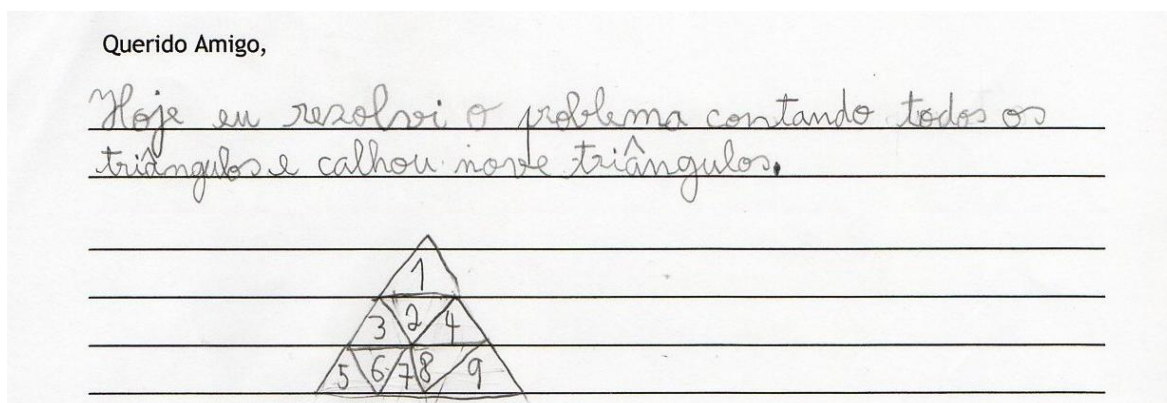 Querido Amigo,
Hoje eu rezolvi o problema contando todos os
triângulos e calhou nove triângulos.
1
3 2 4
5 6 7 8 9